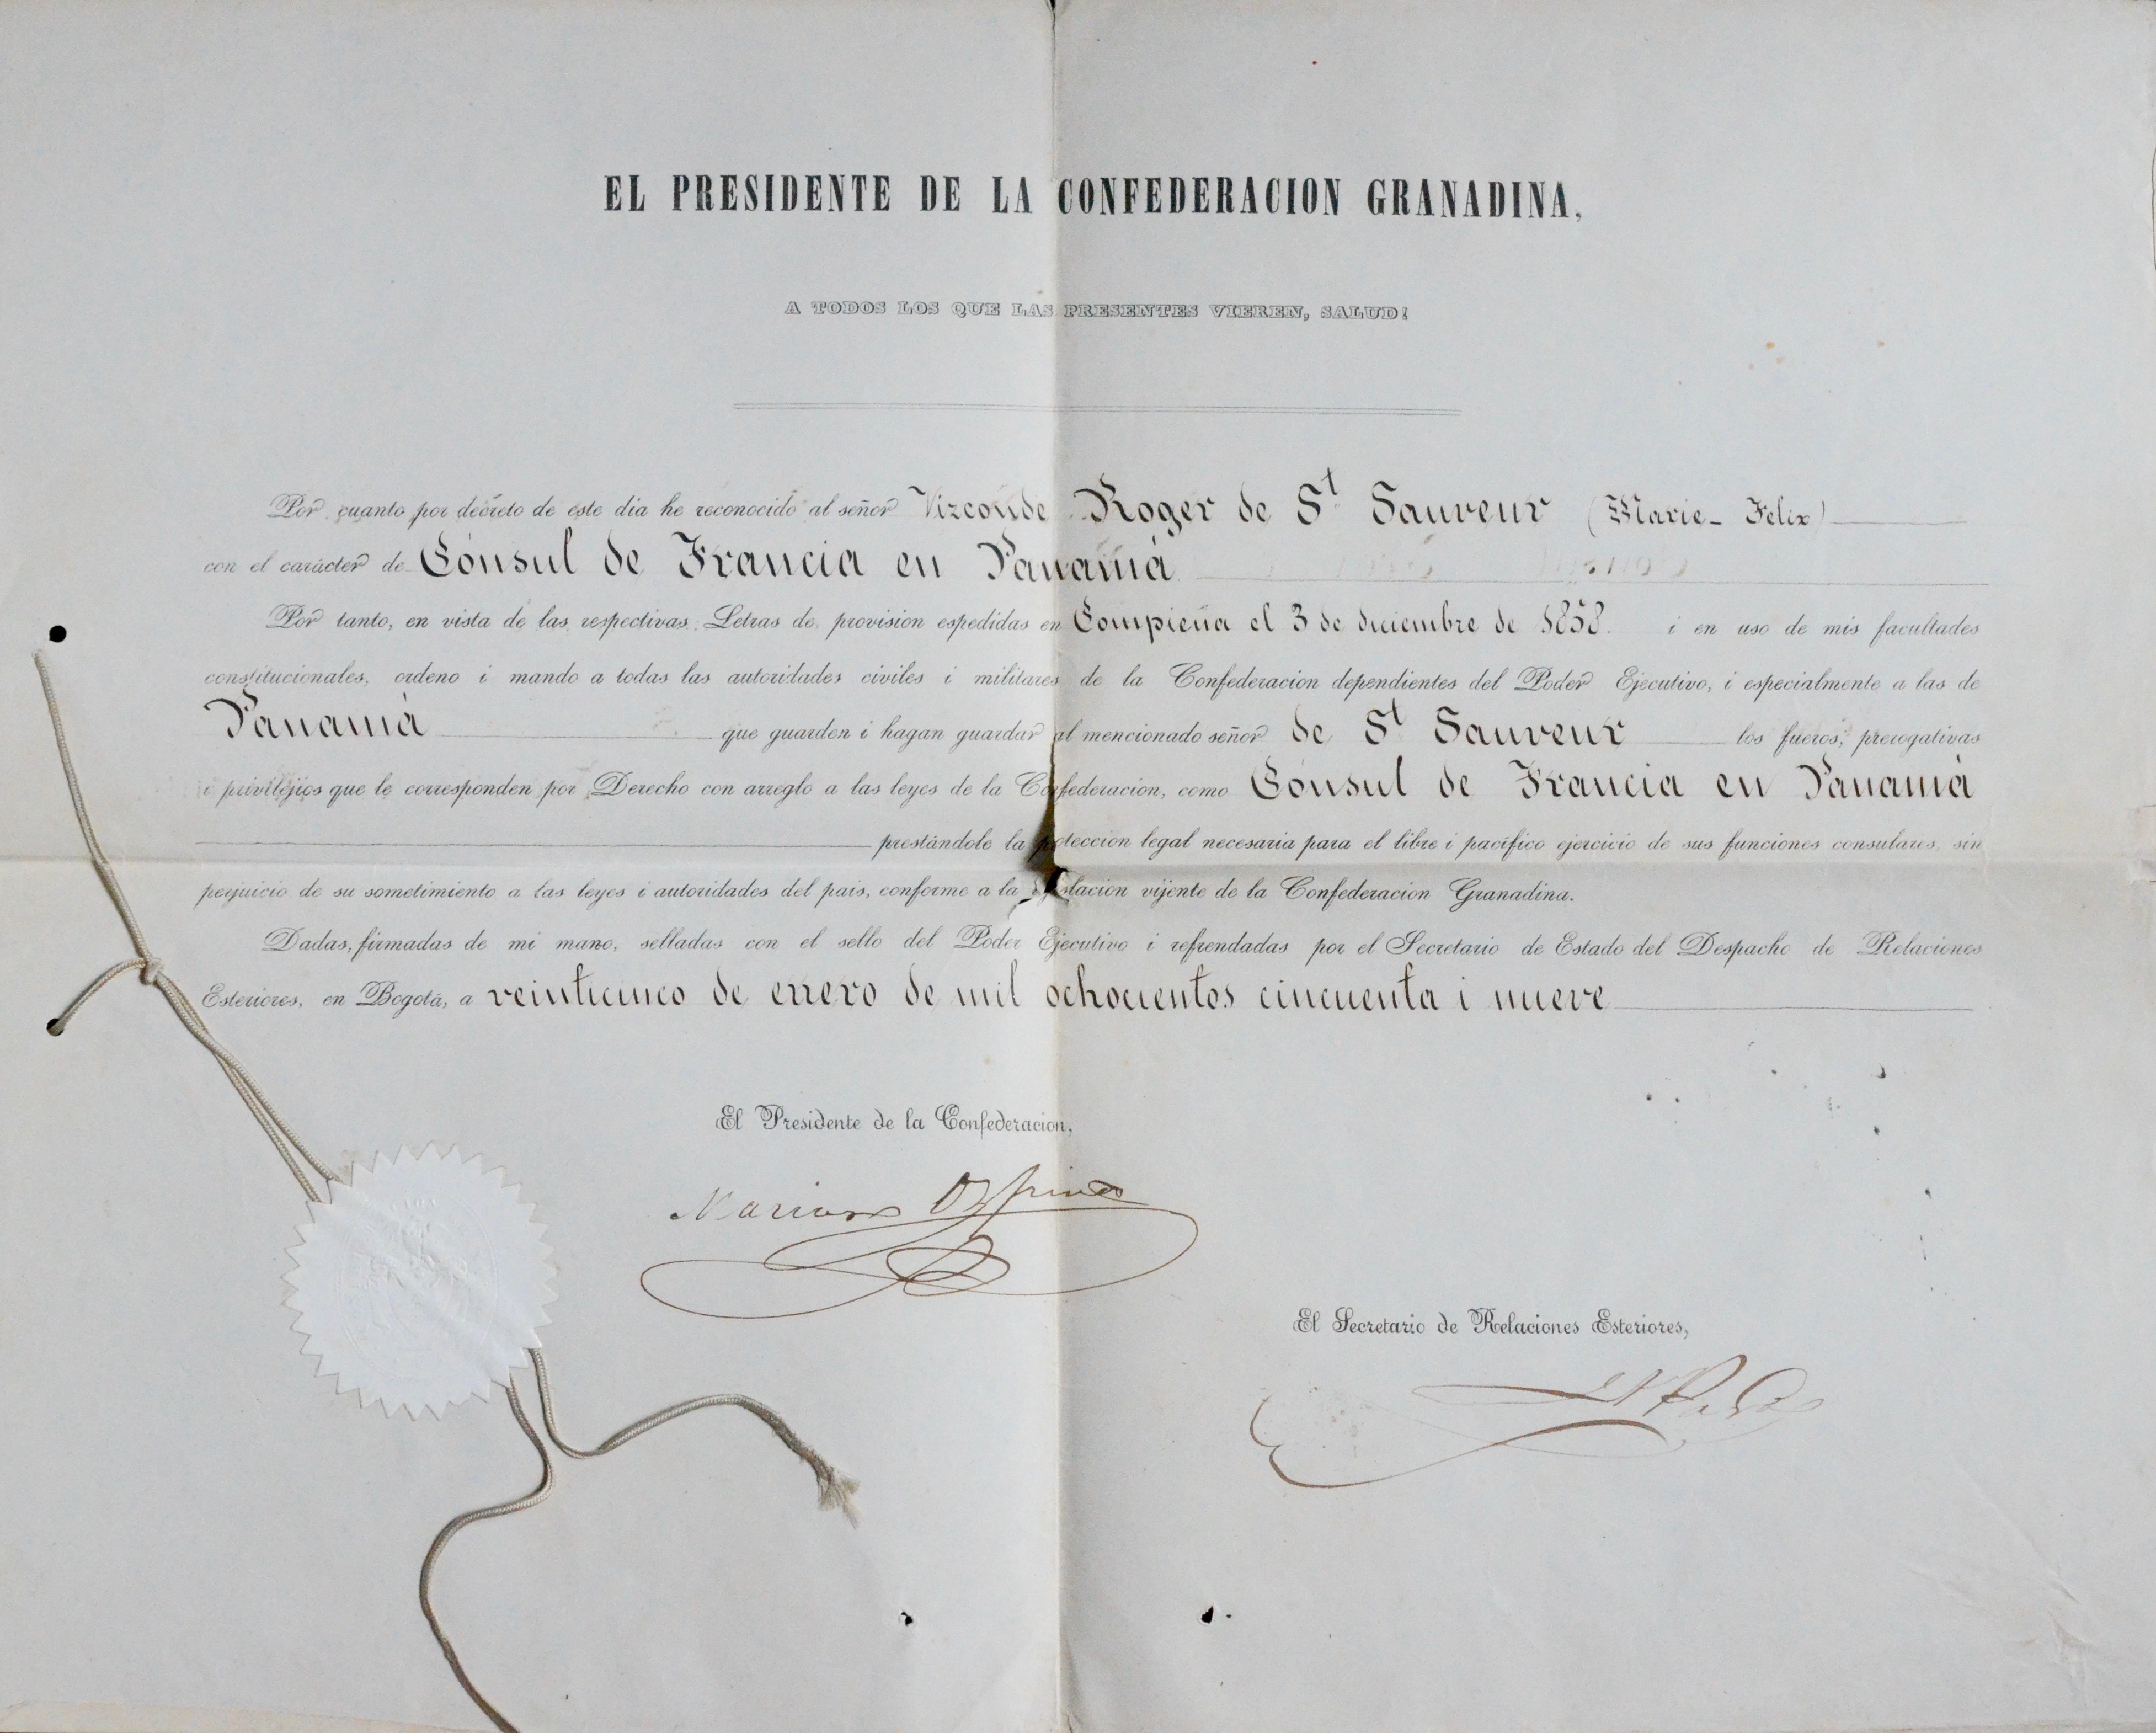 EL PRESIDENTE DE LA CONFEDERACION GRANADINA,
A TODOS LOS QUE LAS PRESENTES VIEREN, SALUD!
Por cuanto por decreto de este dia he reconocido al señor Vizconde Roger de St Sauveur (Marie-Felix)
con el carácter de Cónsul de Francia en Panamá
Por tanto, en vista de las respectivas Letras de provision espedidas en Compieña el 3 de diciembre de 1858. i en uso de mis facultades
constitucionales, ordeno i mando a todas las autoridades civiles i militares de la Confederacion dependientes del Poder Ejecutivo, i especialmente a las de
Panamá que guarden i hagan guardar al mencionado señor de St Sauveur los fueros, prerogativas
i privilejios que le corresponden por Derecho con arreglo a las leyes de la Confederacion, como Cónsul de Francia en Panamá
prestándole la proteccion legal necesaria para el libre i pacífico ejercicio de sus funciones consulares, sin
perjuicio de su sometimiento a las leyes i autoridades del pais, conforme a la lejislacion vijente de la Confederacion Granadina.
Dadas, firmadas de mi mano, selladas con el sello del Poder Ejecutivo i refrendadas por el Secretario de Estado del Despacho de Relaciones
Esteriores, en Bogotá, a veinticinco de enero de mil ochocientos cincuenta i nueve
El Presidente de la Confederacion,
Mariano Ospina
El Secretario de Relaciones Esteriores,